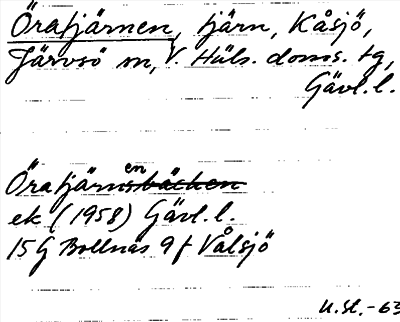 Öratjärnen, tjärn, Kåsjö,
Järvsö sn, V. Häls. doms. tg,
Gävl. l.
Öratjärnen
ek (1958) Gävl. l.
15G Bollnäs 9f Vålsjö
U.St.-63